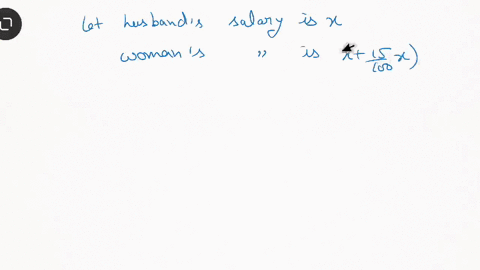 Let husband's salary is x
woman's " is x + 15/100 x)